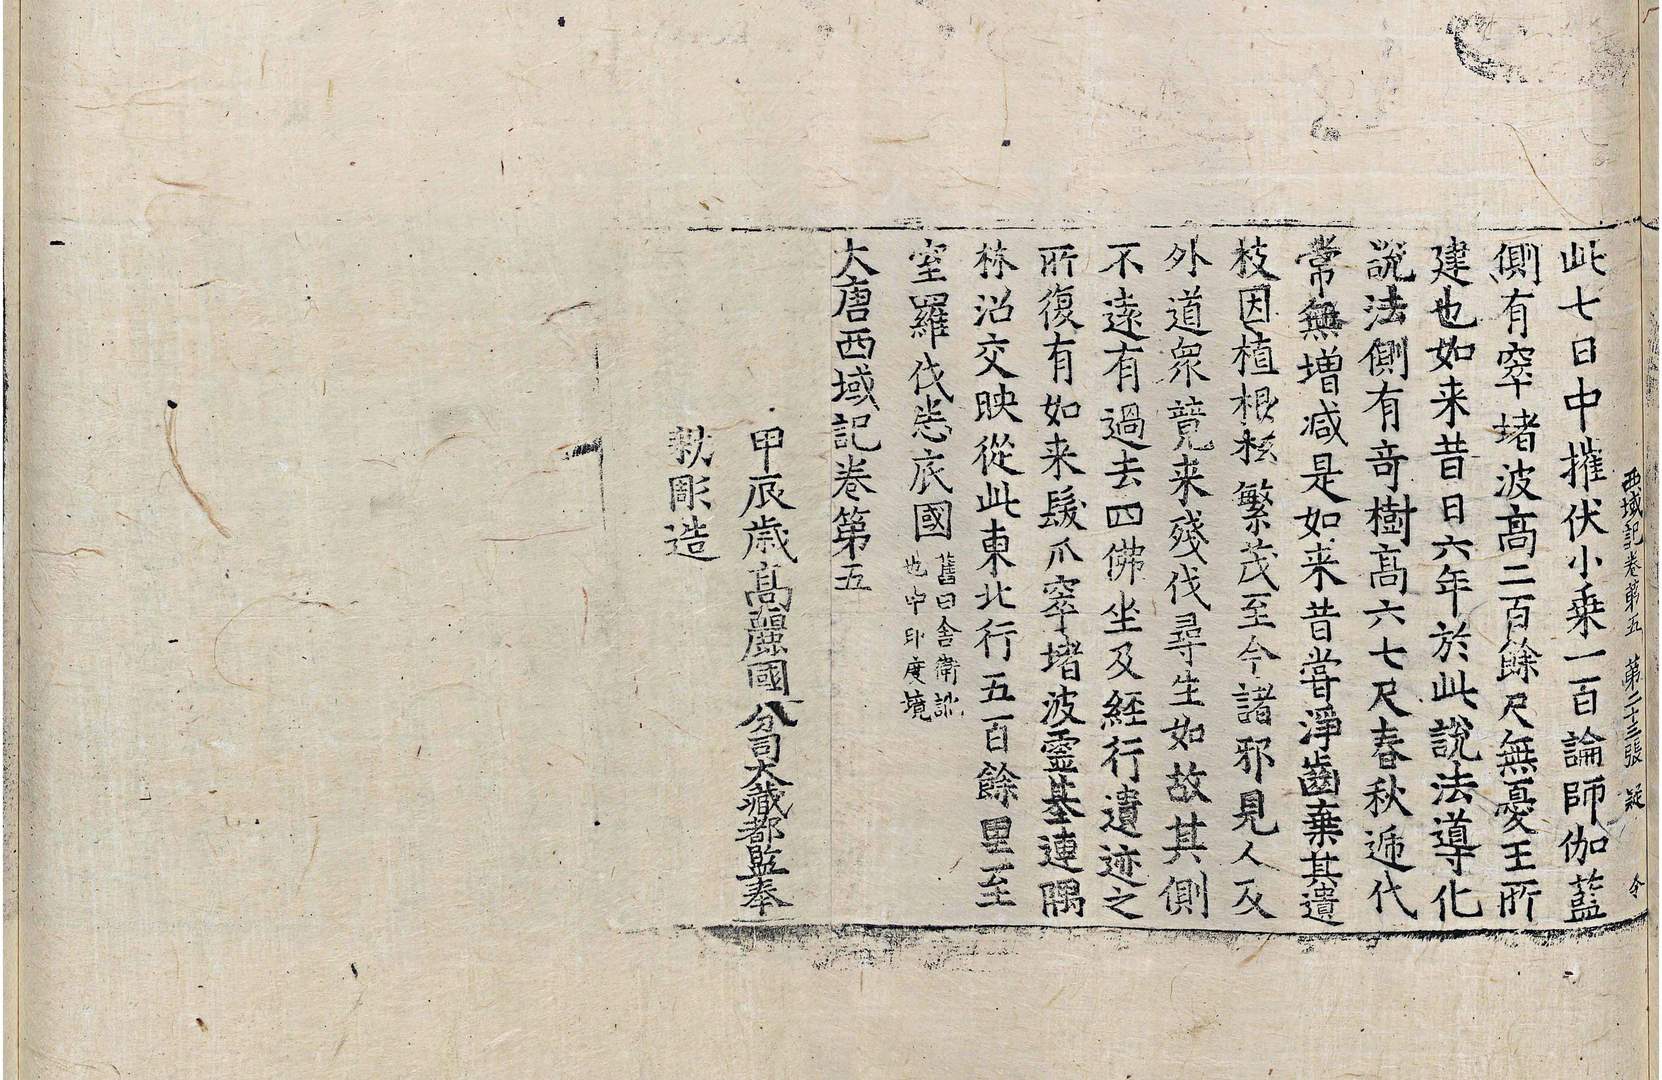 西域記卷第五　第二十三張　疑
此七日中摧伏小乗一百論師伽藍
側有窣堵波高二百餘尺無憂王所
建也如来昔日六年於此說法導化
說法側有竒樹高六七尺春秋遞代
常無増减是如来昔嘗淨齒棄其遺
枝因植根柢繁茂至今諸邪見人及
外道衆競来殘伐尋生如故其側
不遠有過去四佛坐及經行遺迹之
所復有如来髮爪窣堵波靈基連隅
林沼交映從此東北行五百餘里至
室羅伐悉底國舊曰舍衛訛
也中印度境
大唐西域記卷第五
甲辰歳髙麗國分司大藏都監奉
勑彫造